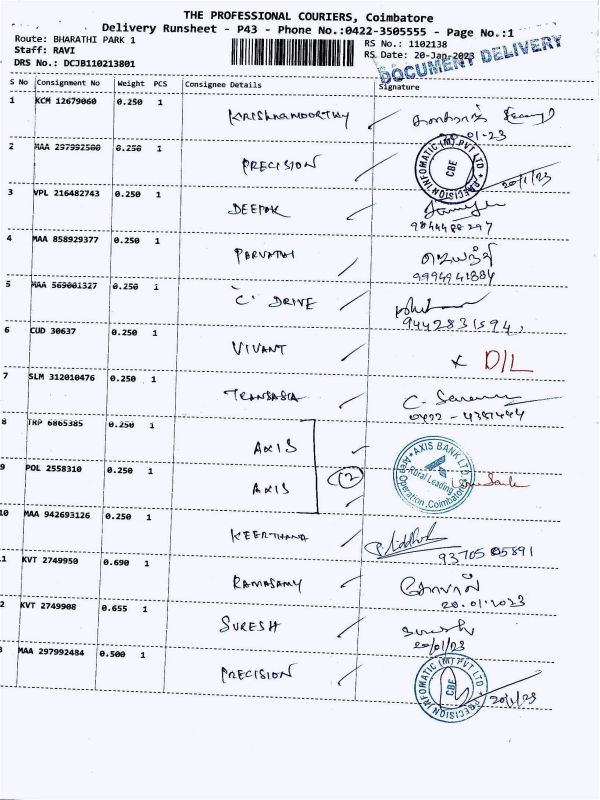 THE PROFESSIONAL COURIERS, Coimbatore
Delivery Runsheet - P43 - Phone No.:0422-3505555 - Page No.:1
Route: BHARATHI PARK 1
Staff: RAVI
DRS No.: DCJB110213801
RS No.: 1102138
RS Date: 20-Jan-2023
DOCUMENT DELIVERY
S No Consignment No Weight PCS Consignee Details Signature
1 KCM 12679060 0.250 1 KRISHNAMOORTHY
20-01-23
2 MAA 297992500 0.250 1 PRECISION
PRECISION INFOMATIC (M) PVT LTD CBE 20/1/23
3 VPL 216482743 0.250 1 DEEPAK
4 MAA 858929377 0.250 1 PARVATHI
9994941884
5 MAA 569001327 0.250 1 "C" DRIVE
9442831594
6 CUD 30637 0.250 1 VIVANT × D/L
7 SLM 312010476 0.250 1 TRANSASIA
8 TRP 6865385 0.250 1 AXIS
9 POL 2558310 0.250 1 AXIS 2
AXIS BANK LTD Rural Lending Area Operation, Coimbatore
10 MAA 942693126 0.250 1 KEERTHANA
1 KVT 2749950 0.690 1 RAMASAMY
20.01.2023
2 KVT 2749908 0.655 1 SURESH
20/01/23
3 MAA 297992484 0.500 1 PRECISION
PRECISION INFOMATIC (M) PVT LTD CBE 20/1/23